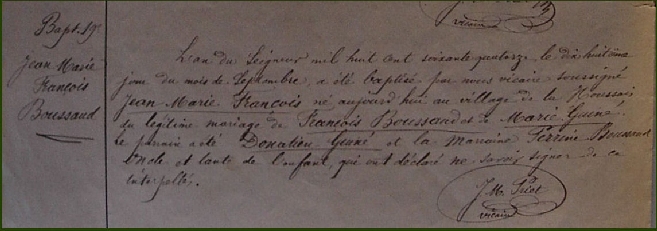 vicaire
Bapt. 19e
Jean Marie
François
Boussaud
L'an du Seigneur mil huit cent soixante quatorze le dix huitième
jour du mois de Septembre, a été baptisé par nous vicaire soussigné
Jean Marie François né aujourd'hui au village de la Houssais
du légitime mariage de François Boussaud et de Marie Guiné.
le parrain a été Donatien Guiné et la marraine Perrine Boussaud
oncle et tante de l'enfant, qui ont déclaré ne savoir signer de ce
interpellés.
J. M.
vicaire